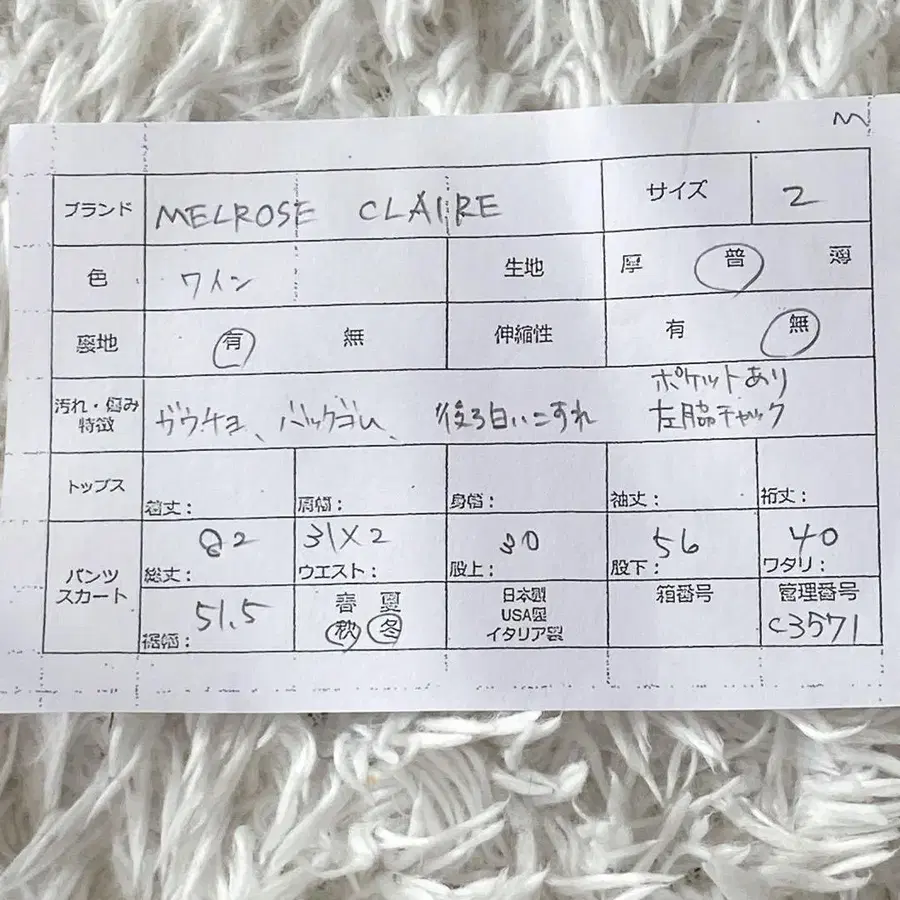 M
ブランド MELROSE CLAIRE サイズ 2
色 ワイン 生地 厚 普 薄
裏地 有 無 伸縮性 有 無
汚れ・傷み
特徴
ガウチョ、バックゴム、後ろ白いこすれ
ポケットあり
左脇チャック
トップス 着丈: 肩幅: 身幅: 袖丈: 裄丈:
パンツ
スカート
82 31×2 30 56 40
総丈: ウエスト: 股上: 股下: ワタリ:
51.5
裾幅:
春 夏
秋 冬
日本製
USA製
イタリア製
箱番号
管理番号
C3571